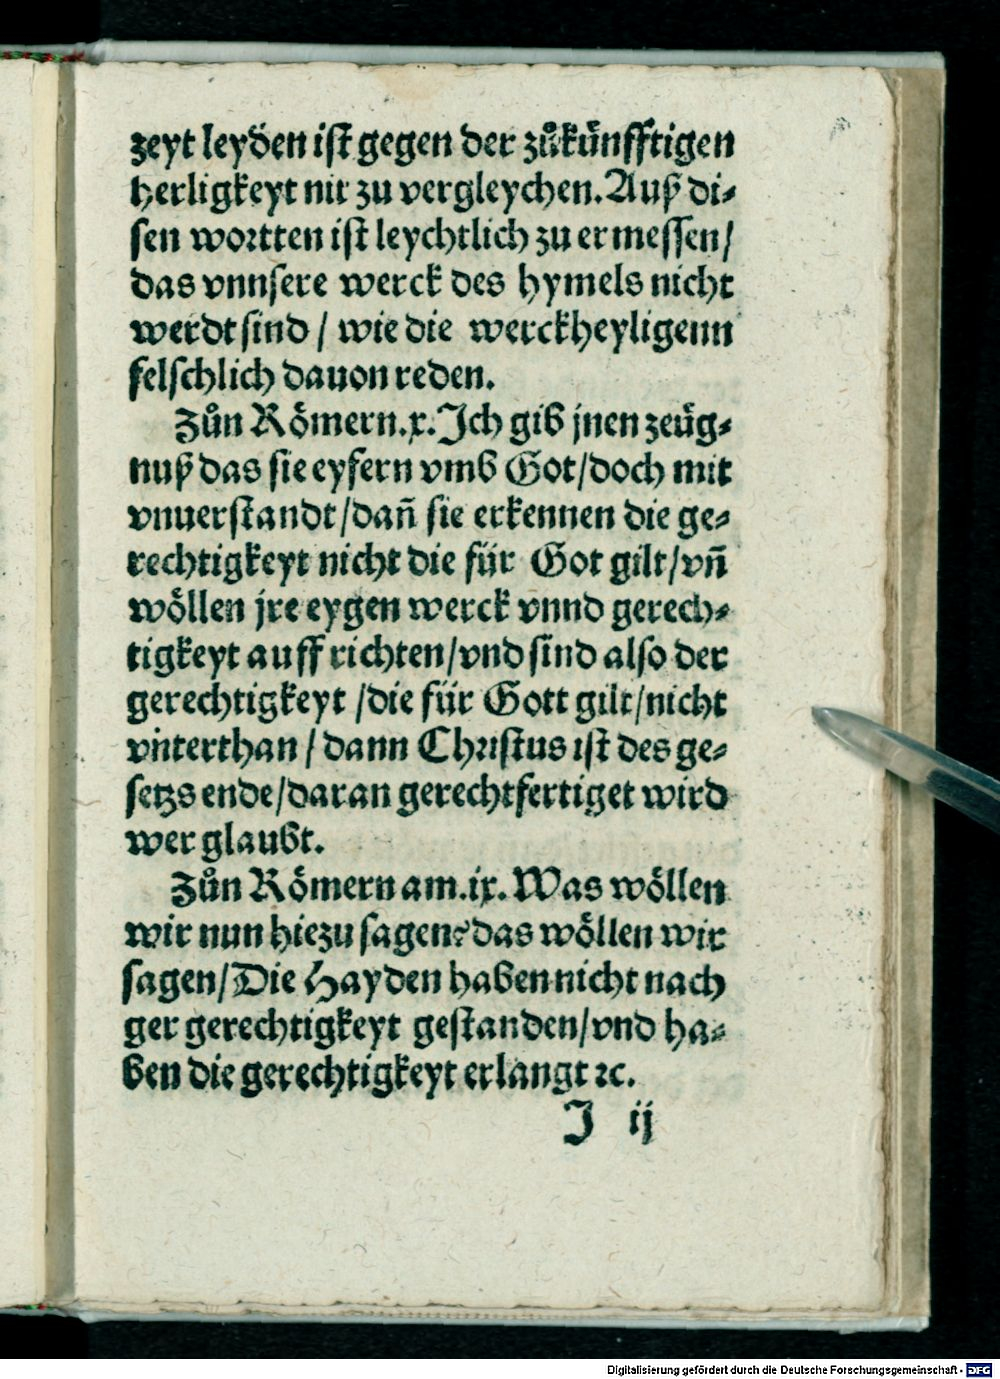 zeyt leyden ist gegen der zůkünfftigen
herligkeyt nit zu vergleychen. Auß di⸗
sen wortten ist leychtlich zu ermessen/
das vnnsere werck des hymels nicht
werdt sind / wie die werckheyligenn
felschlich dauon reden.
Zůn Römern.x. Ich gib jnen zeüg⸗
nuß das sie eyfern vmb Got/doch mit
vnuerstandt/dañ sie erkennen die ge⸗
rechtigkeyt nicht die für Got gilt/vñ
wöllen jre eygen werck vnnd gerech⸗
tigkeyt auff richten/vnd sind also der
gerechtigkeyt /die für Gott gilt/nicht
vnterthan / dann Christus ist des ge⸗
setzs ende/daran gerechtfertiget wird
wer glaubt.
Zůn Römern am.ix. Was wöllen
wir nun hiezu sagen? das wöllen wir
sagen/Die Hayden haben nicht nach
ger gerechtigkeyt gestanden/vnd ha⸗
ben die gerechtigkeyt erlangt ꝛc.
J ij
Digitalisierung gefördert durch die Deutsche Forschungsgemeinschaft - DFG